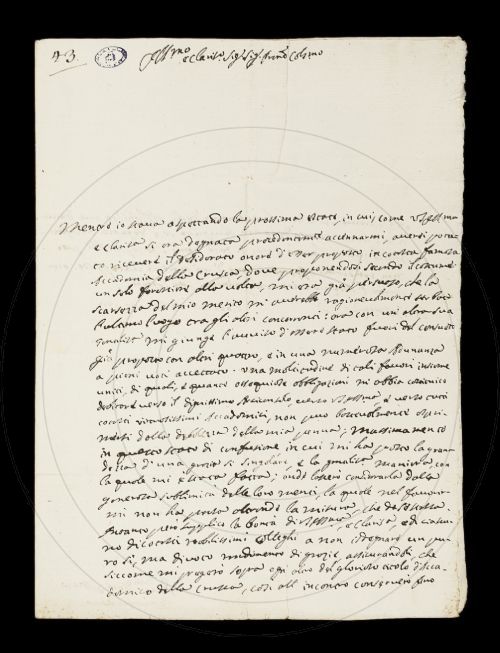 43.
Ill.mo
e Clariss.o Sig.r Sig.r Pron.e Col.mo
Mentre io stava aspettando la prossima state, in cui, come V.S. Ill.ma
e Clariss.a si era degnata precedentem.te accennarmi, avrei potu-
to ricevere il desiderato onore d'esser proposto in cotesta famosa
Accademia della Crusca, dove proponendosi secondo il costume
un solo forestiere alla volta, mi era già persuaso, che la
scarsezza del mio merito mi averebbe ragionevolmente serbato
l'ultimo luogo tra gli altri concorrenti: ora con un'altra sua
gentiliss.a mi giunge l'avviso d'essere stato fuori del consueto
già proposto con altri quattro, e in una numerosa Adunanza
a pieni voti accettato. Una moltitudine di tali favori insieme
uniti, di quali, e quante ossequiose obbligazioni mi abbia
verso il dignissimo Arciconsolo, verso V.S. Ill.ma e verso tutti
cotesti virtuosissimi Accademici, non può bastevolmente espri-
mersi dalla debolezza della mia penna; massimamente
in questo stato di confusione in cui mi ha posto la gran-
dezza d'una grazia sì singolare, e la gentiliss.a maniera, con
la quale mi è stata fatta; onde
generosa sublimità delle loro menti, la quale nel favorir-
mi non ha preso altronde la misura, che da se stessa.
Intanto però supplico la bontà di V.S. Ill.ma e Clariss.a e di ciascu-
no di cotesti nobilissimi Colleghi a non isdegnare un pu-
ro sì, ma divoto rendimento di grazie, assicurandoli, che
siccome mi pregerò sopra ogni altro del glorioso titolo d'Acca-
demico della Crusca, così all'incontro conserverò fino